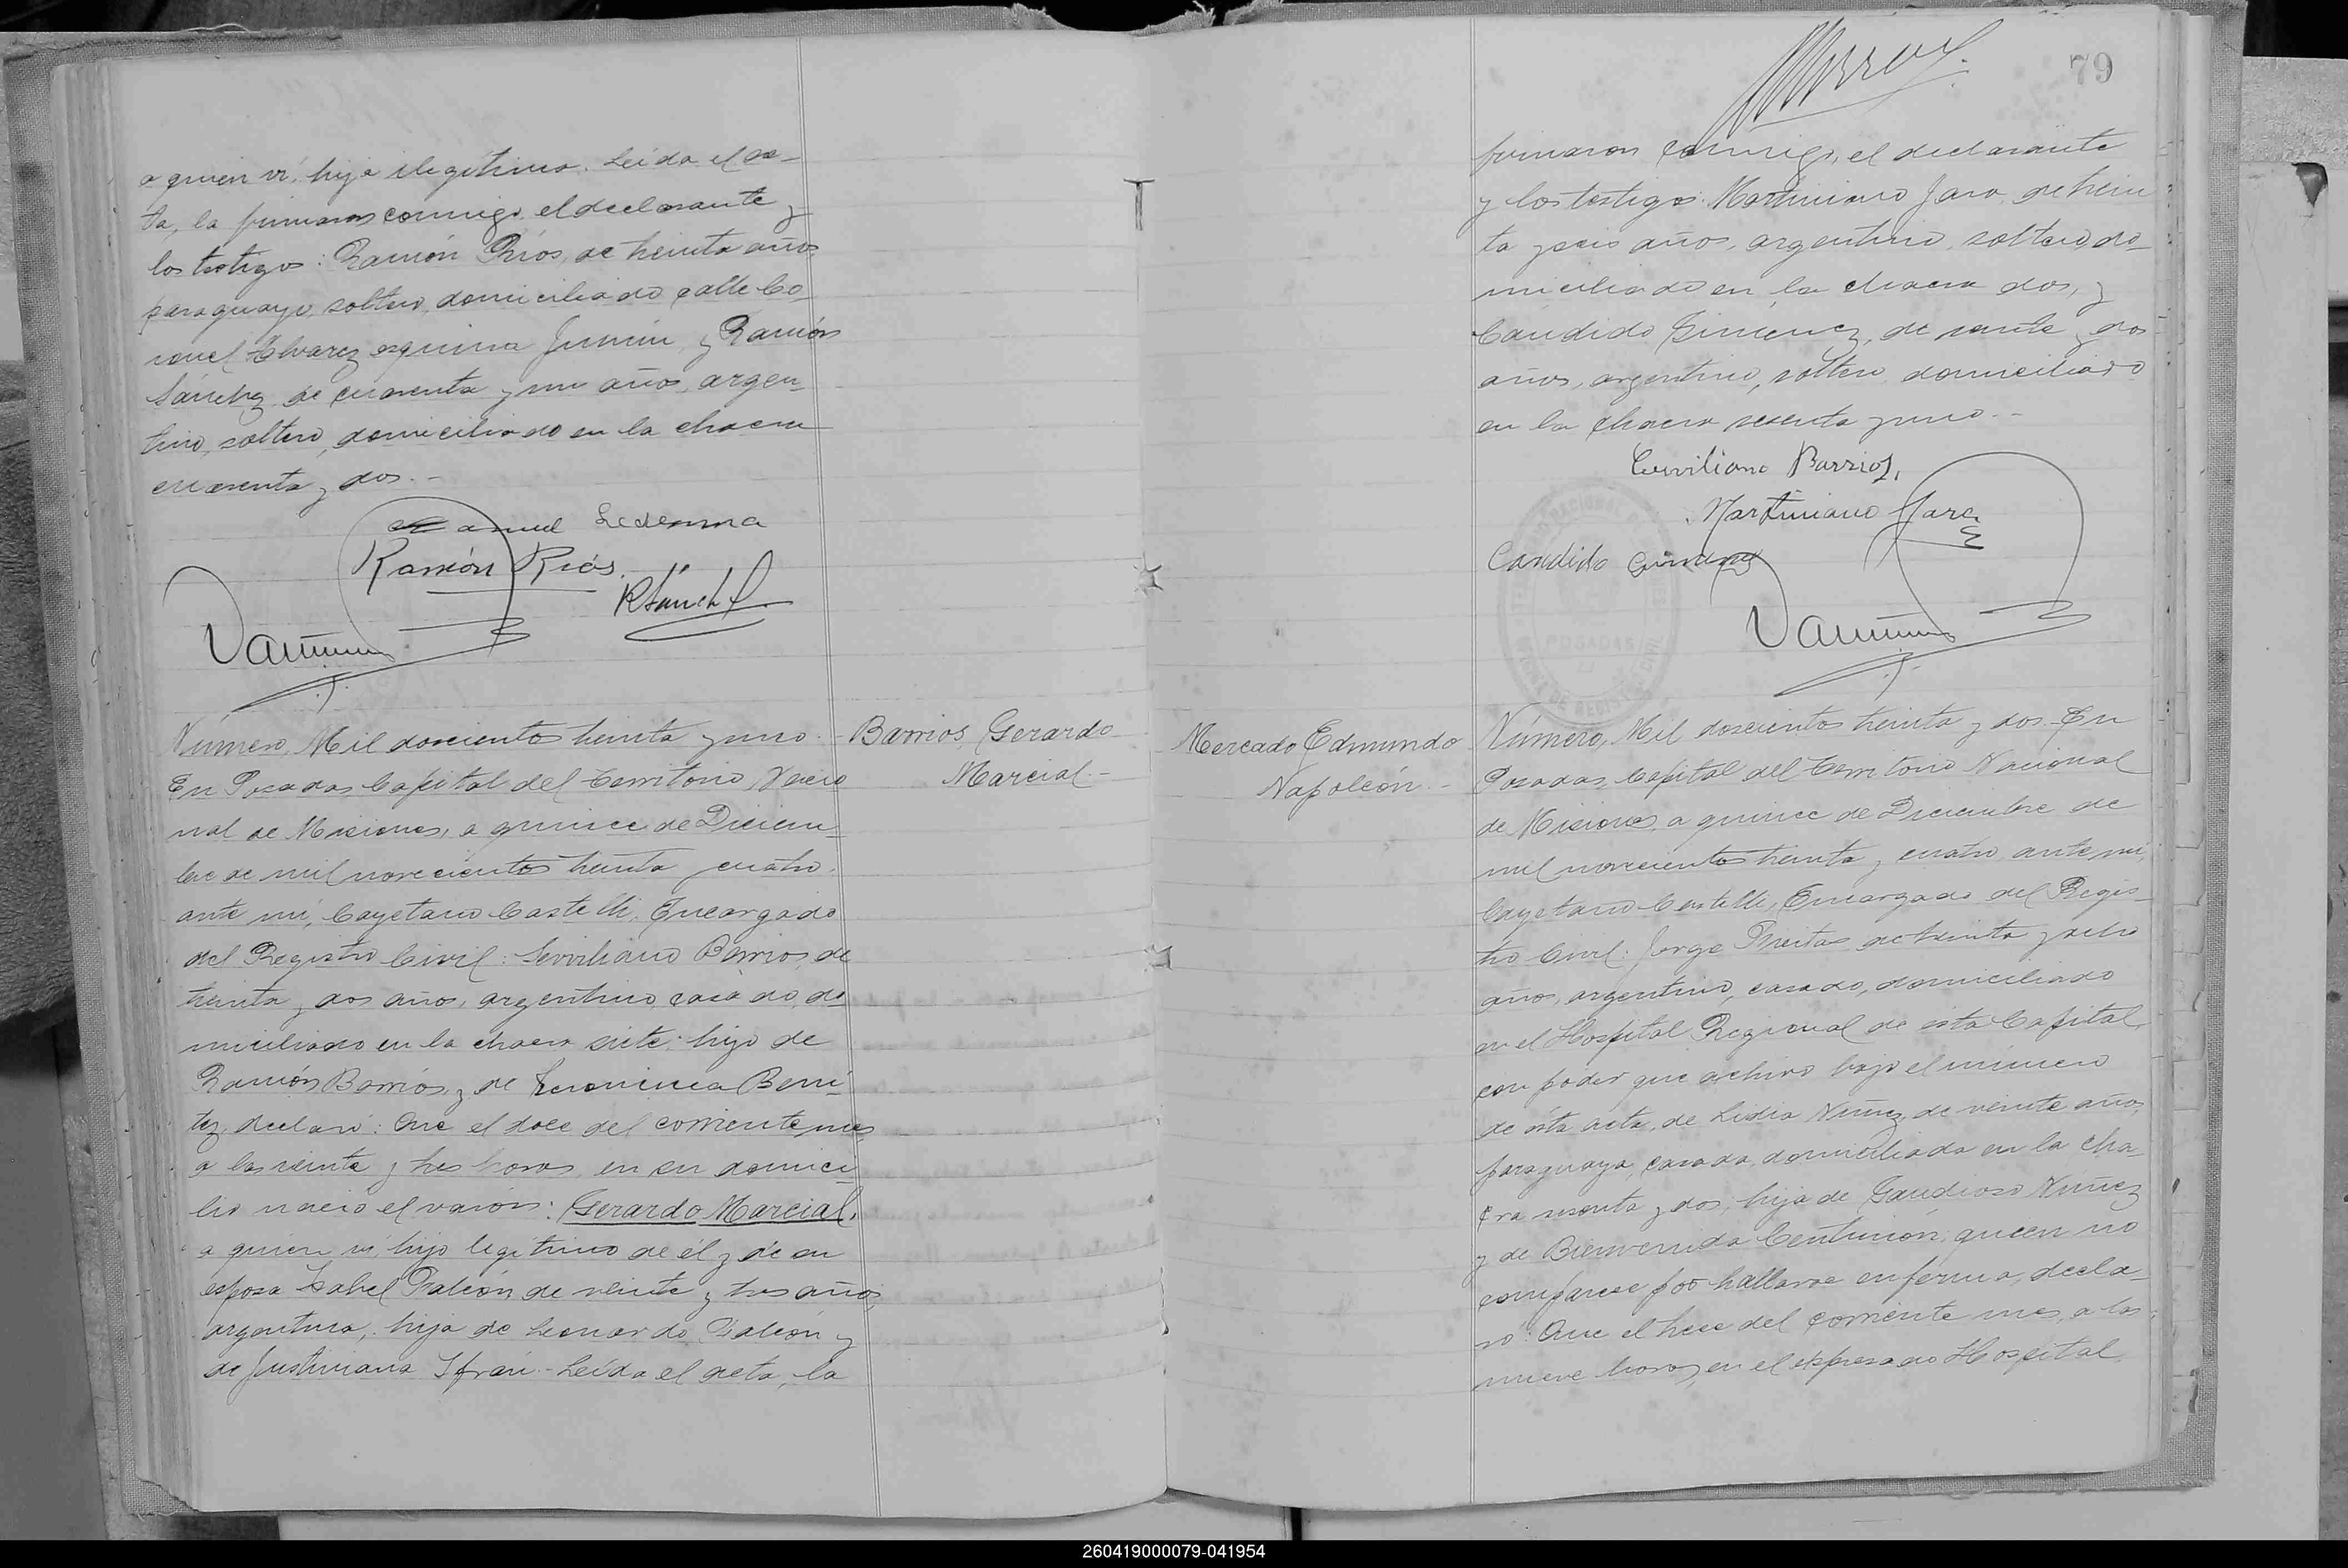 a quien vi, hija ilegítima. Leída el ac-
ta, la firmaron conmigo, el declarante y
los testigos: Ramón Ríos, de treinta años,
paraguayo, soltero, domiciliado calle Co-
ronel Alvarez esquina Junín, y Ramón
Sánchez, de cuarenta y un años, argen-
tino, soltero, domiciliado en la chacra
cuarenta y dos.-
Manuel Ledesma
Ramón Ríos.
RSánchez
Número, Mil doscientos treinta y uno.-
En Posadas, Capital del Territorio Nacio
nal de Misiones, a quince de Diciem-
bre de mil novecientos treinta y cuatro,
ante mí, Cayetano Castelli, Encargado
del Registro Civil: Serviliano Barrios, de
treinta y dos años, argentino, casado, do-
miciliado en la chacra siete; hijo de
Ramón Barrios y de Gerónima Bení-
tez, declaró: Que el doce del corriente mes,
a las veinte y tres horas, en su domici-
lio nació el varón: Gerardo Marcial,
a quien vi, hijo legítimo de él y de su
esposa Isabel Falcón, de veinte y tres años,
argentina, hija de Leonardo Falcón y
de Justiniana Ifrán.- Leída el acta, la
Barrios, Gerardo
Marcial.-
79
firmaron conmigo, el declarante
y los testigos: Martiniano Jara, de trein
ta y seis años, argentino, soltero, do-
miciliado en la chacra dos, y
Cándido Giménez, de veinte y dos
años, argentino, soltero, domiciliado
en la chacra sesenta y uno.-
Cerviliano Barrios,
Martiniano Jara
Candido Gimenez
POSADAS
Mercado, Edmundo
Napoleón.-
Número, Mil doscientos treinta y dos.- En
Posadas, Capital del Territorio Nacional
de Misiones, a quince de Diciembre de
mil novecientos treinta y cuatro, ante mí,
Cayetano Castelli, Encargado del Regis-
tro Civil: Jorge Freitas, de treinta y ocho
años, argentino, casado, domiciliado
en el Hospital Regional de esta Capital,
con poder que archivo bajo el número
de ésta acta, de Lidia Nuñez, de veinte años,
paraguaya, casada, domiciliada en la cha-
cra sesenta y dos, hija de Gaudioso Nuñez
y de Bienvenida Centurión, quien no
comparece por hallarse enferma, decla-
ró: Que el trece del corriente mes, a las
nueve horas, en el expresado Hospital
260419000079-041954